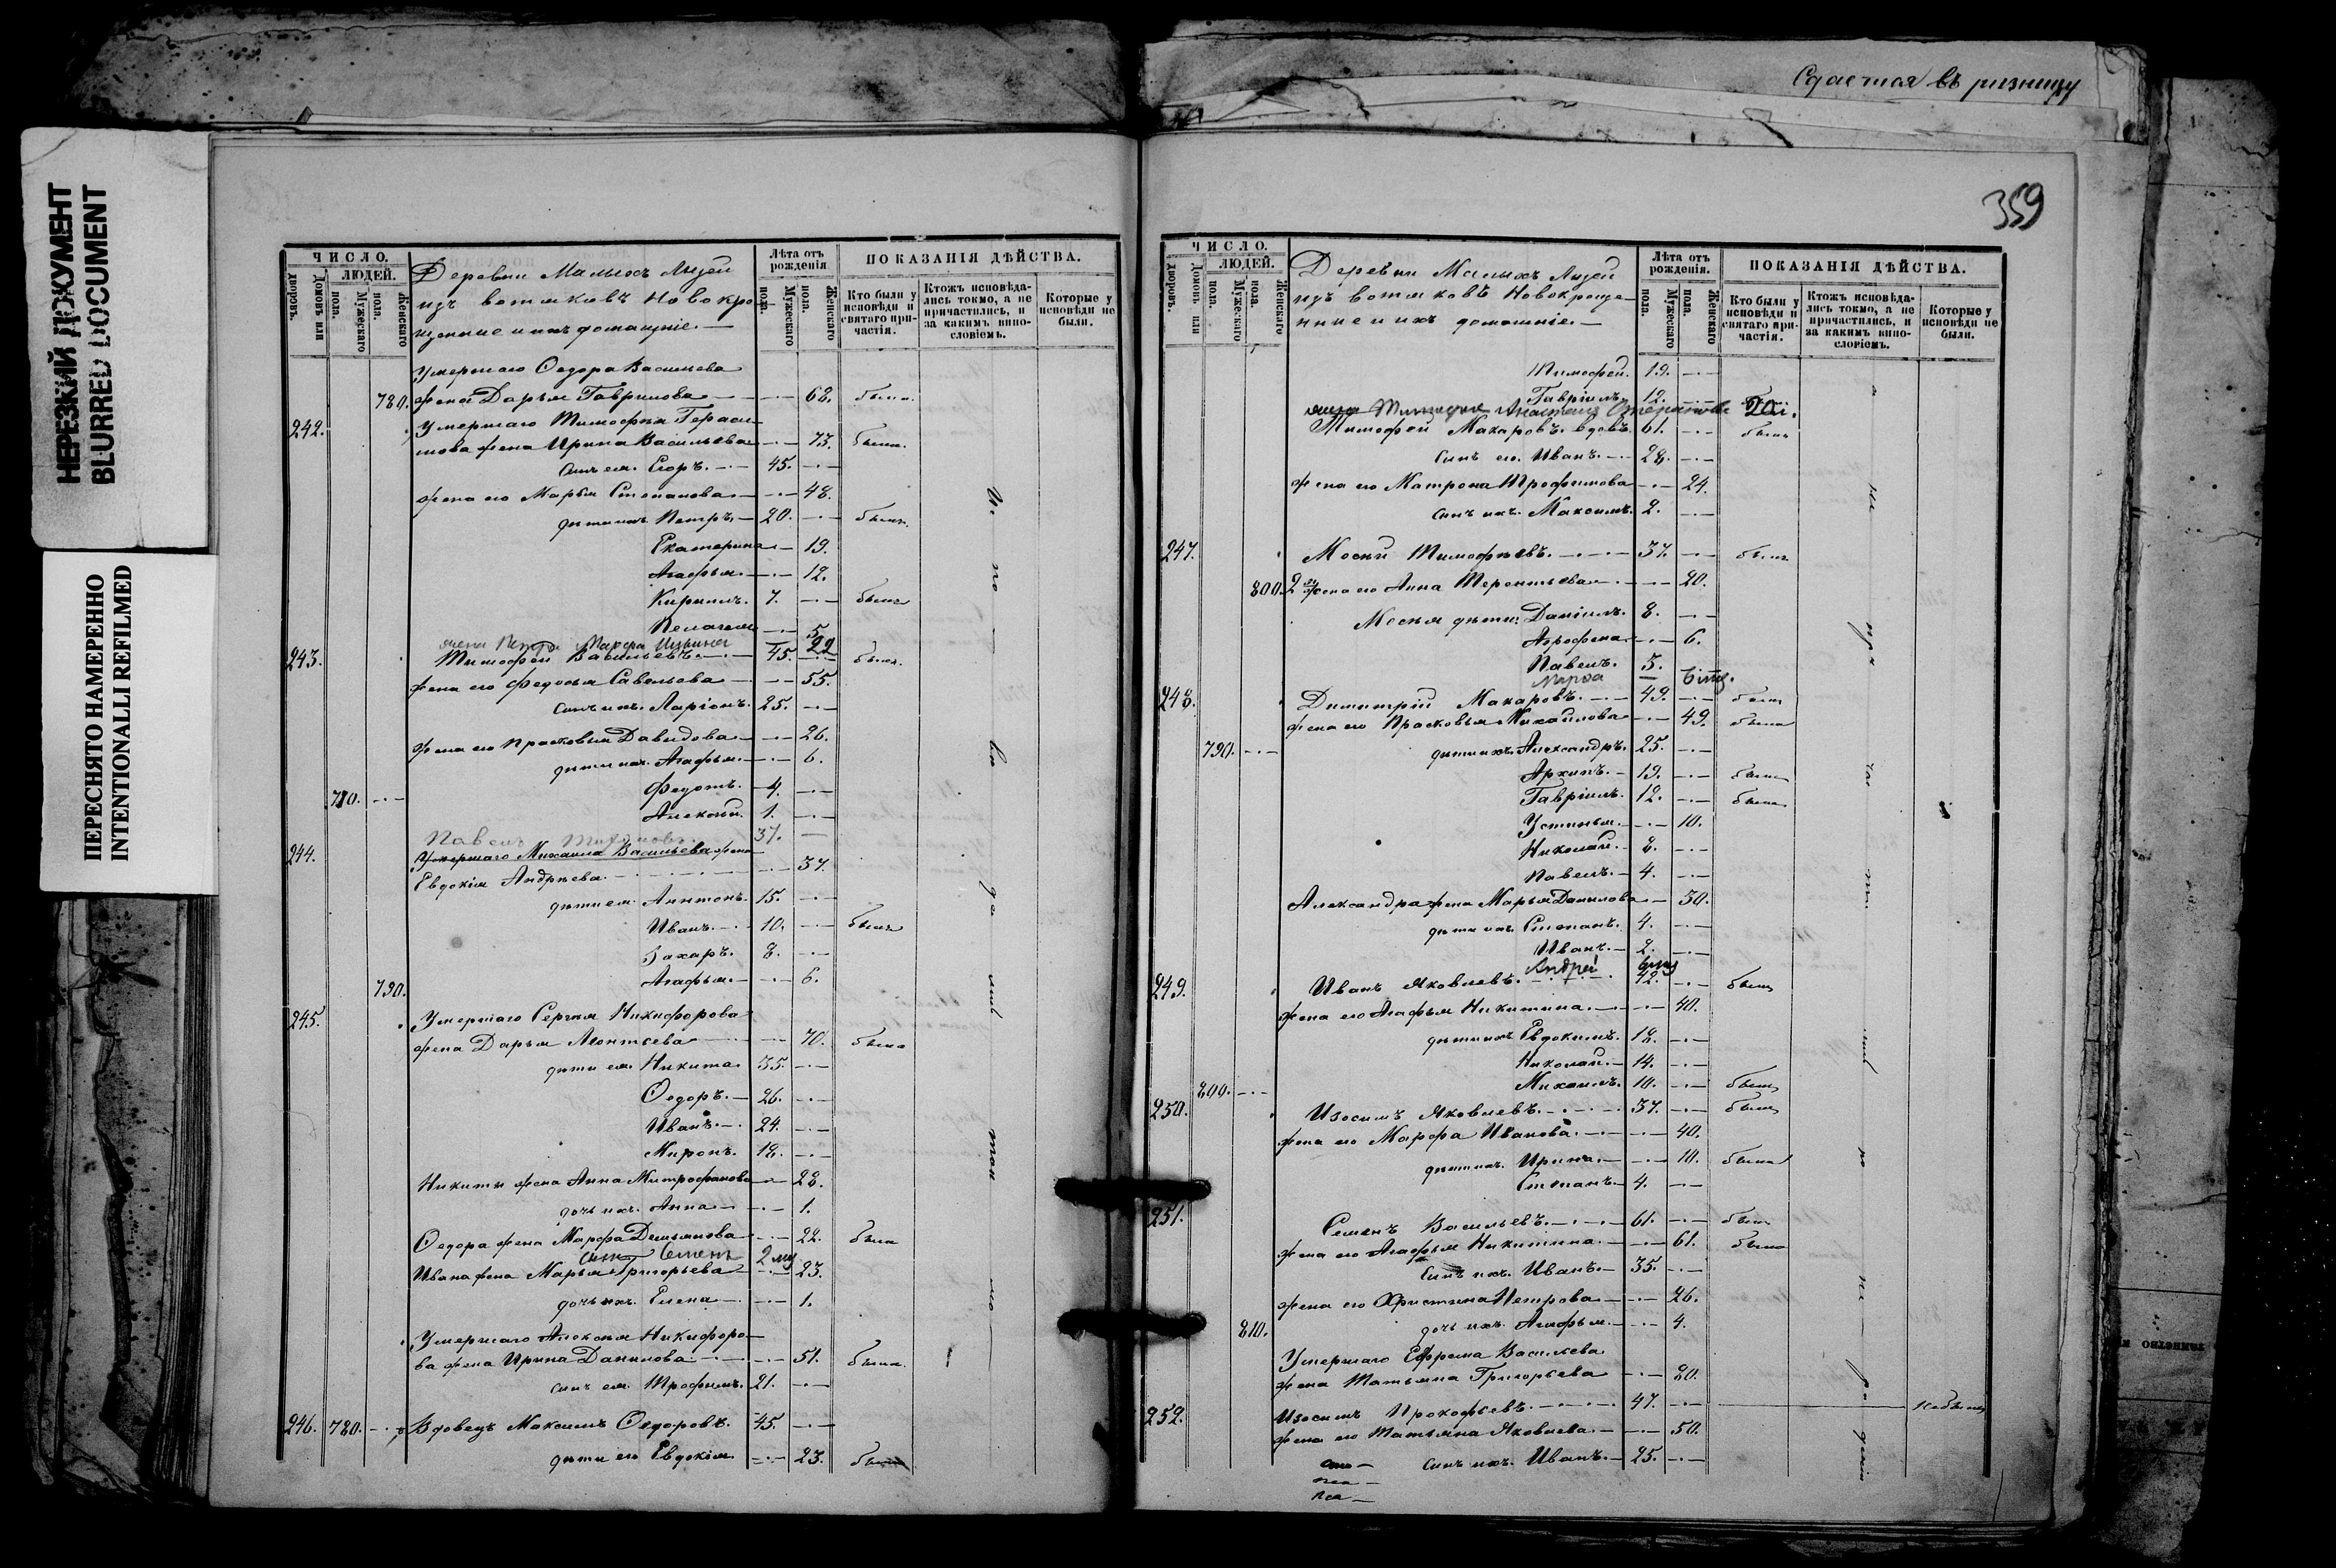 НЕРЕЗКИЙ ДОКУМЕНТ
BLURRED DOCUMENT
ПЕРЕСНЯТО НАМЕРЕННО
INTENTIONALLI REFILMED
ЧИСЛО.
ЛЮДЕЙ.
Домовъ или дворовъ.
Мужескаго пола.
Женскаго пола.
Деревни Малыхъ Лудзи
изъ вотяковъ новокре
щенные и ихъ домашніе.
Лѣта отъ рожденія.
Мужескаго пола.
Женскаго пола.
ПОКАЗАНІЯ ДѢЙСТВА.
Кто были у исповѣди и святаго причастія.
Ктожъ исповѣдались токмо, а не причастились, и за какимъ винословіемъ.
Которые у исповѣди не были.
Умершаго Ѳедора Васильева
780. жена Дарья Гаврилова 68. была
242. Умершаго Тимофея Гераси
мова жена Ирина Васильева 73. была
сынъ ея Егоръ. 45.
жена его Марья Степанова 48.
дѣти ихъ Петръ 20. былъ
Екатерина 19.
Агафья 12.
Кирилъ. 7. былъ
Пелагея 5.
жена Петра Марфа 22
243. Тимофей Васильевъ. 45. былъ
жена его Федосья Савельева 55.
сынъ ихъ Ларіонъ. 25.
жена его Прасковья Давидова 26.
дѣти ихъ Агафья 6.
Федотъ. 4.
770. Алексѣй. 1.
Павелъ 37.
244. Умершаго Михаила Васильева жена
Евдокія Андрѣева 37.
дѣти ея Антонъ. 15.
Иванъ. 10. былъ
Захаръ. 8.
790. Агафья 6.
245. Умершаго Сергѣя Никифорова
жена Дарья Леонтьева 70. была
дѣти ея Никита 35.
Ѳедоръ. 26.
Иванъ. 24.
Миронъ. 18.
Никиты жена Анна Митрофанова 28.
дочь ихъ Анна 1.
Ѳедора жена Марфа Демьянова 22. была
сынъ Семенъ 2 мц
Ивана жена Марья Григорьева 23.
дочь ихъ Елена 1.
Умершаго Алексѣя Никифоро
ва жена Ирина Данилова 51. была
сынъ ея Трофимъ. 21.
246. 780. Вдовецъ Максимъ Ѳедоровъ. 45.
дѣти его Евдокія 23. была
359
ЧИСЛО.
ЛЮДЕЙ.
Домовъ или дворовъ.
Мужескаго пола.
Женскаго пола.
Деревни Малыхъ Лудзи
изъ вотяковъ новокреще
нные и ихъ домашніе.
Лѣта отъ рожденія.
Мужескаго пола.
Женскаго пола.
ПОКАЗАНІЯ ДѢЙСТВА.
Кто были у исповѣди и святаго причастія.
Ктожъ исповѣдались токмо, а не причастились, и за какимъ винословіемъ.
Которые у исповѣди не были.
Тимофей. 19.
Гавріилъ. 12.
жена Тимофея Анастасія Степанова 20.
Тимофей Макаровъ. вдовъ. 61. былъ
сынъ его Иванъ. 28.
жена его Матрона Трофимова 24.
сынъ ихъ Максимъ. 2.
247. Мосѣй Тимофѣевъ. 37. былъ
800. 2я жена его Анна Терентьева 20.
Мосѣя дѣти: Даніилъ. 8.
Агрофена 6.
Павелъ. 3.
Марѳа
248. Димитрій Макаровъ. 49. былъ
жена его Прасковья Михайлова 49. была
790. дѣти ихъ Александръ. 25.
Архипъ. 19. былъ
Гавріилъ. 12. былъ
Устинья 10.
Николай. 8.
Павелъ. 4.
Александра жена Марья Данилова 30.
дѣти ихъ Степанъ. 4.
Иванъ. 2.
Андрей
249. Иванъ Яковлевъ. 42. былъ
жена его Агафья Никитина 40.
дѣти ихъ Евдокимъ. 18.
Николай. 14.
800. Михаилъ. 10. былъ
250. Изосимъ Яковлевъ. 37. былъ
жена его Марфа Иванова 40.
дѣти ихъ Ирина 10. была
Степанъ 4.
251. Семенъ Васильевъ. 61. былъ
жена его Агафья Никитина 61. была
сынъ ихъ Иванъ. 35.
жена его Христина Петрова 26.
810. дочь ихъ Агафья 4.
Умершаго Ефрема Васильева
жена Татьяна Григорьева 80.
252. Изосимъ Прокофьевъ. 47. небылъ
жена его Татьяна Яковлева 50.
сынъ ихъ Иванъ. 25.